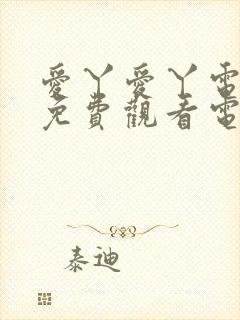 愛丫愛丫電
免費觀看電
泰迪